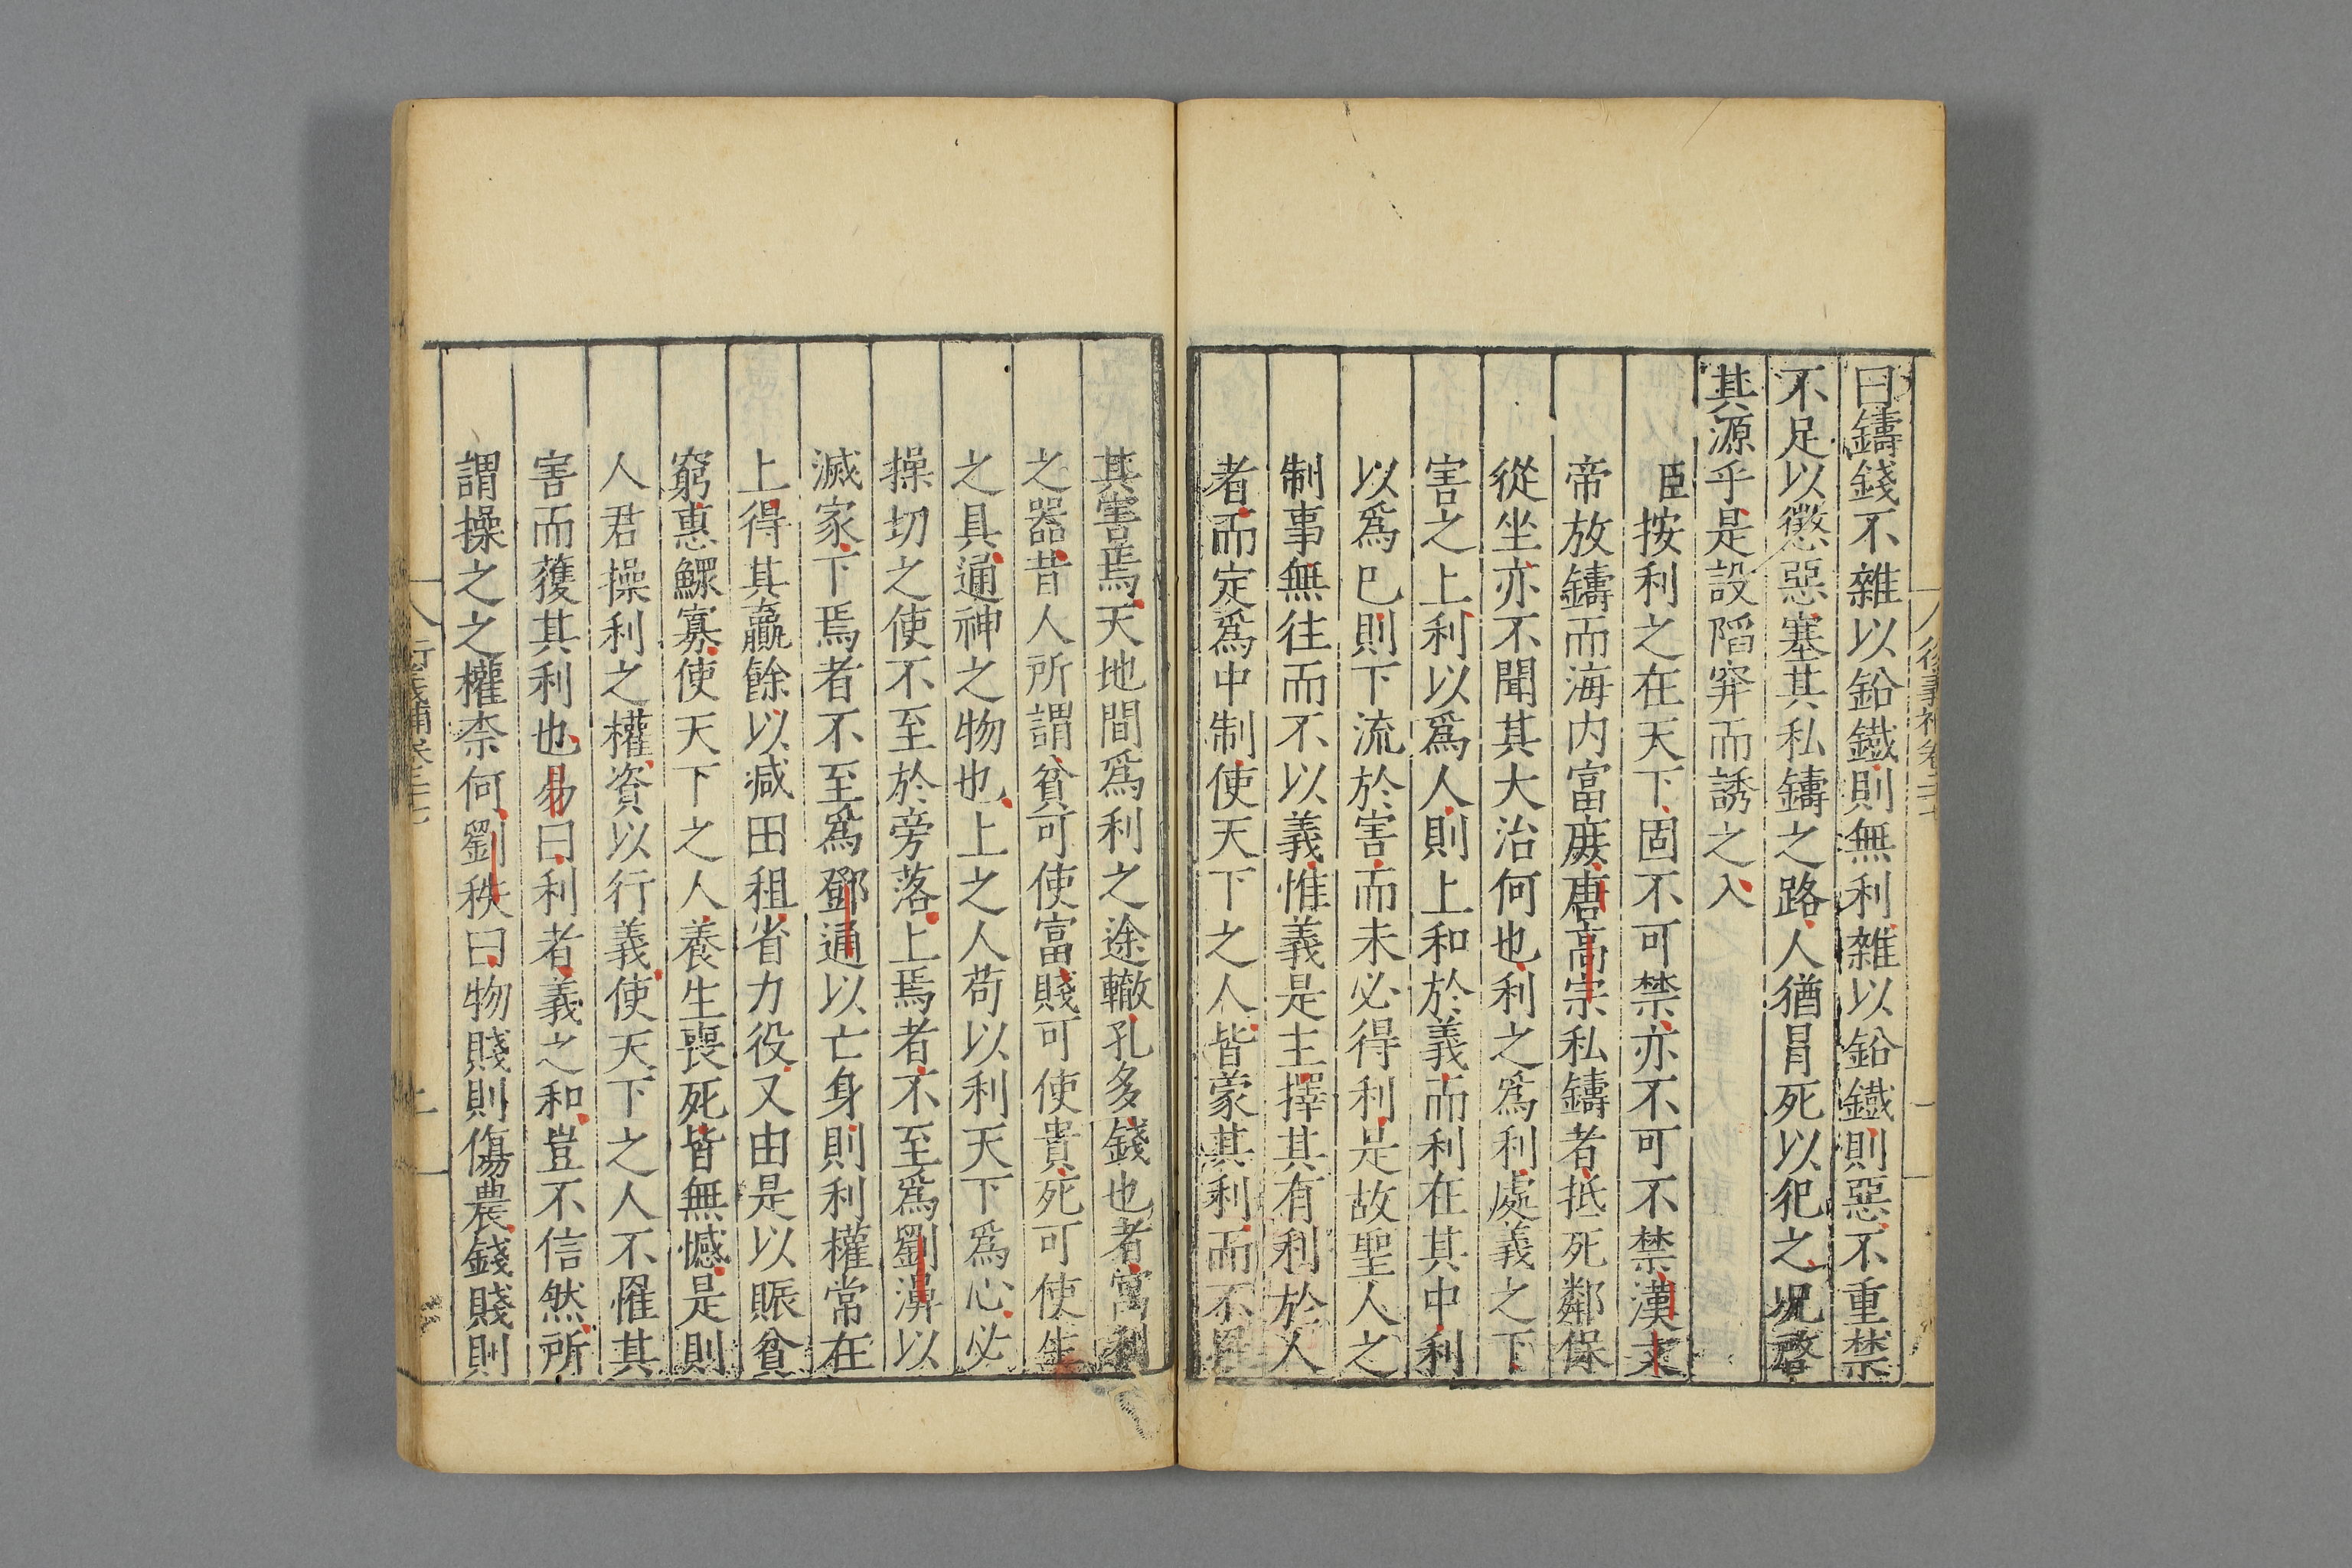 曰鑄錢不雜以鉛鐵則無利雜以鉛鐵則惡不重禁
不足以懲惡塞其私鑄之路人猶冒死以犯之況啓
其源乎是設陷穽而誘之入
臣按利之在天下固不可禁亦不可不禁漢文
帝放鑄而海内富庶唐高宗私鑄者抵死鄰保
從坐亦不聞其大治何也利之為利處義之下
害之上利以為人則上和於義而利在其中利
以為已則下流於害而未必得利是故聖人之
制事無往而不以義惟義是主擇其有利於人
者而定為中制使天下之人皆蒙其利而不罹
其害焉天地間為利之途轍孔多錢也者寓利
之器昔人所謂貧可使富賤可使貴死可使生
之具通神之物也上之人苟以利天下為心必
操切之使不至於旁落上焉者不至為劉濞以
滅家下焉者不至為鄧通以亡身則利權常在
上得其贏餘以减田租省力役又由是以賑貧
窮惠鰥寡使天下之人養生喪死皆無憾是則
人君操利之權資以行義使天下之人不罹其
害而獲其利也易曰利者義之和豈不信然所
謂操之之權柰何劉秩曰物賤則傷農錢賤則